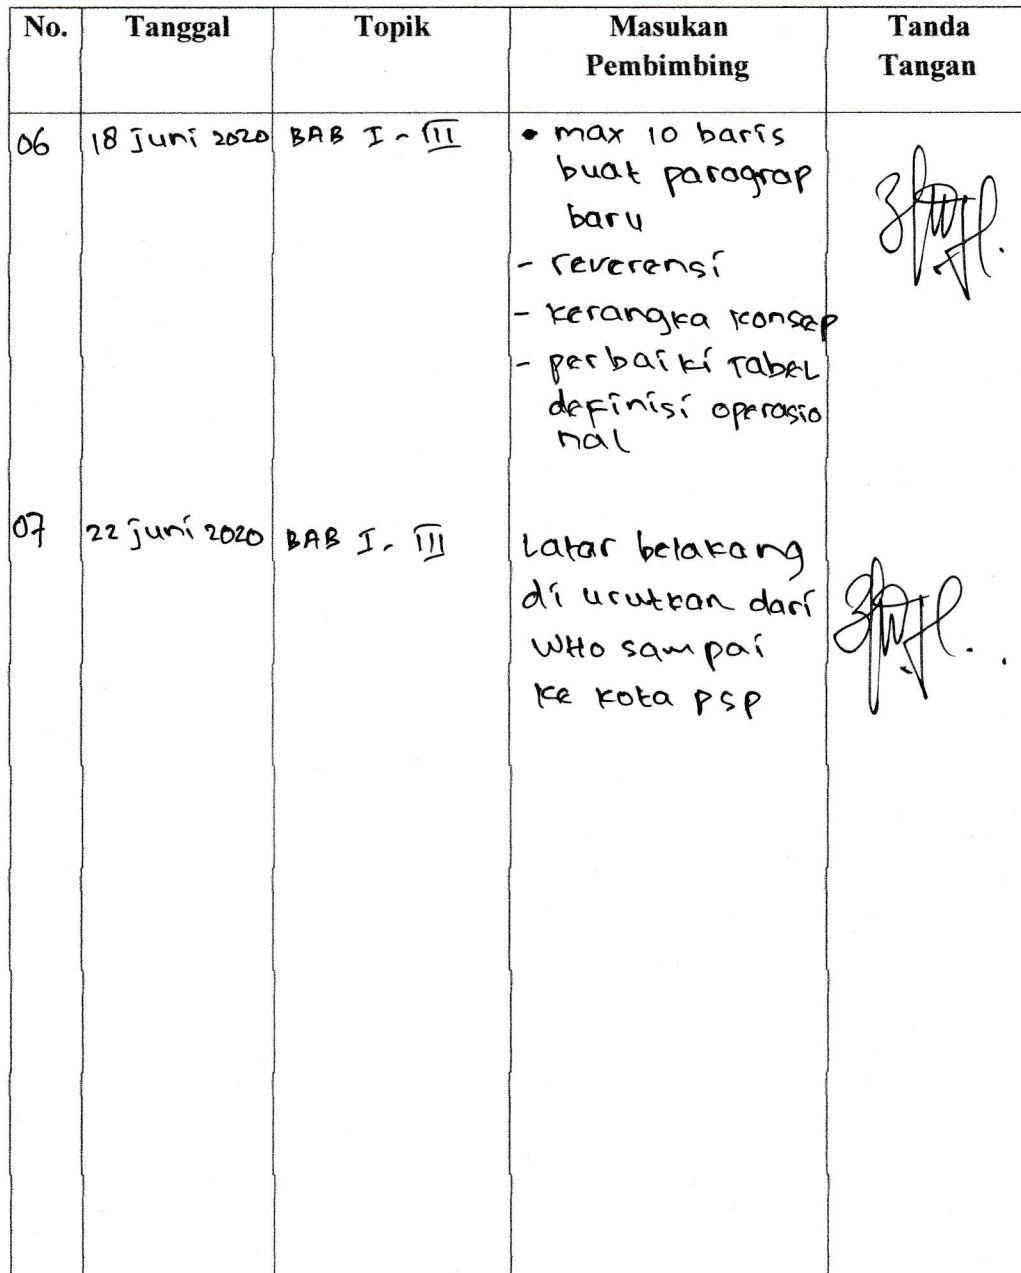 No. Tanggal Topik Masukan Pembimbing Tanda Tangan
06 18 juni 2020 BAB I - III • max 10 baris
buat paragrap
baru
- reverensi
- kerangka konsep
- perbaiki Tabel
definisi operasio
nal
07 22 juni 2020 BAB I - III Latar belakang
di urutkan dari
WHO sampai
ke kota PSP